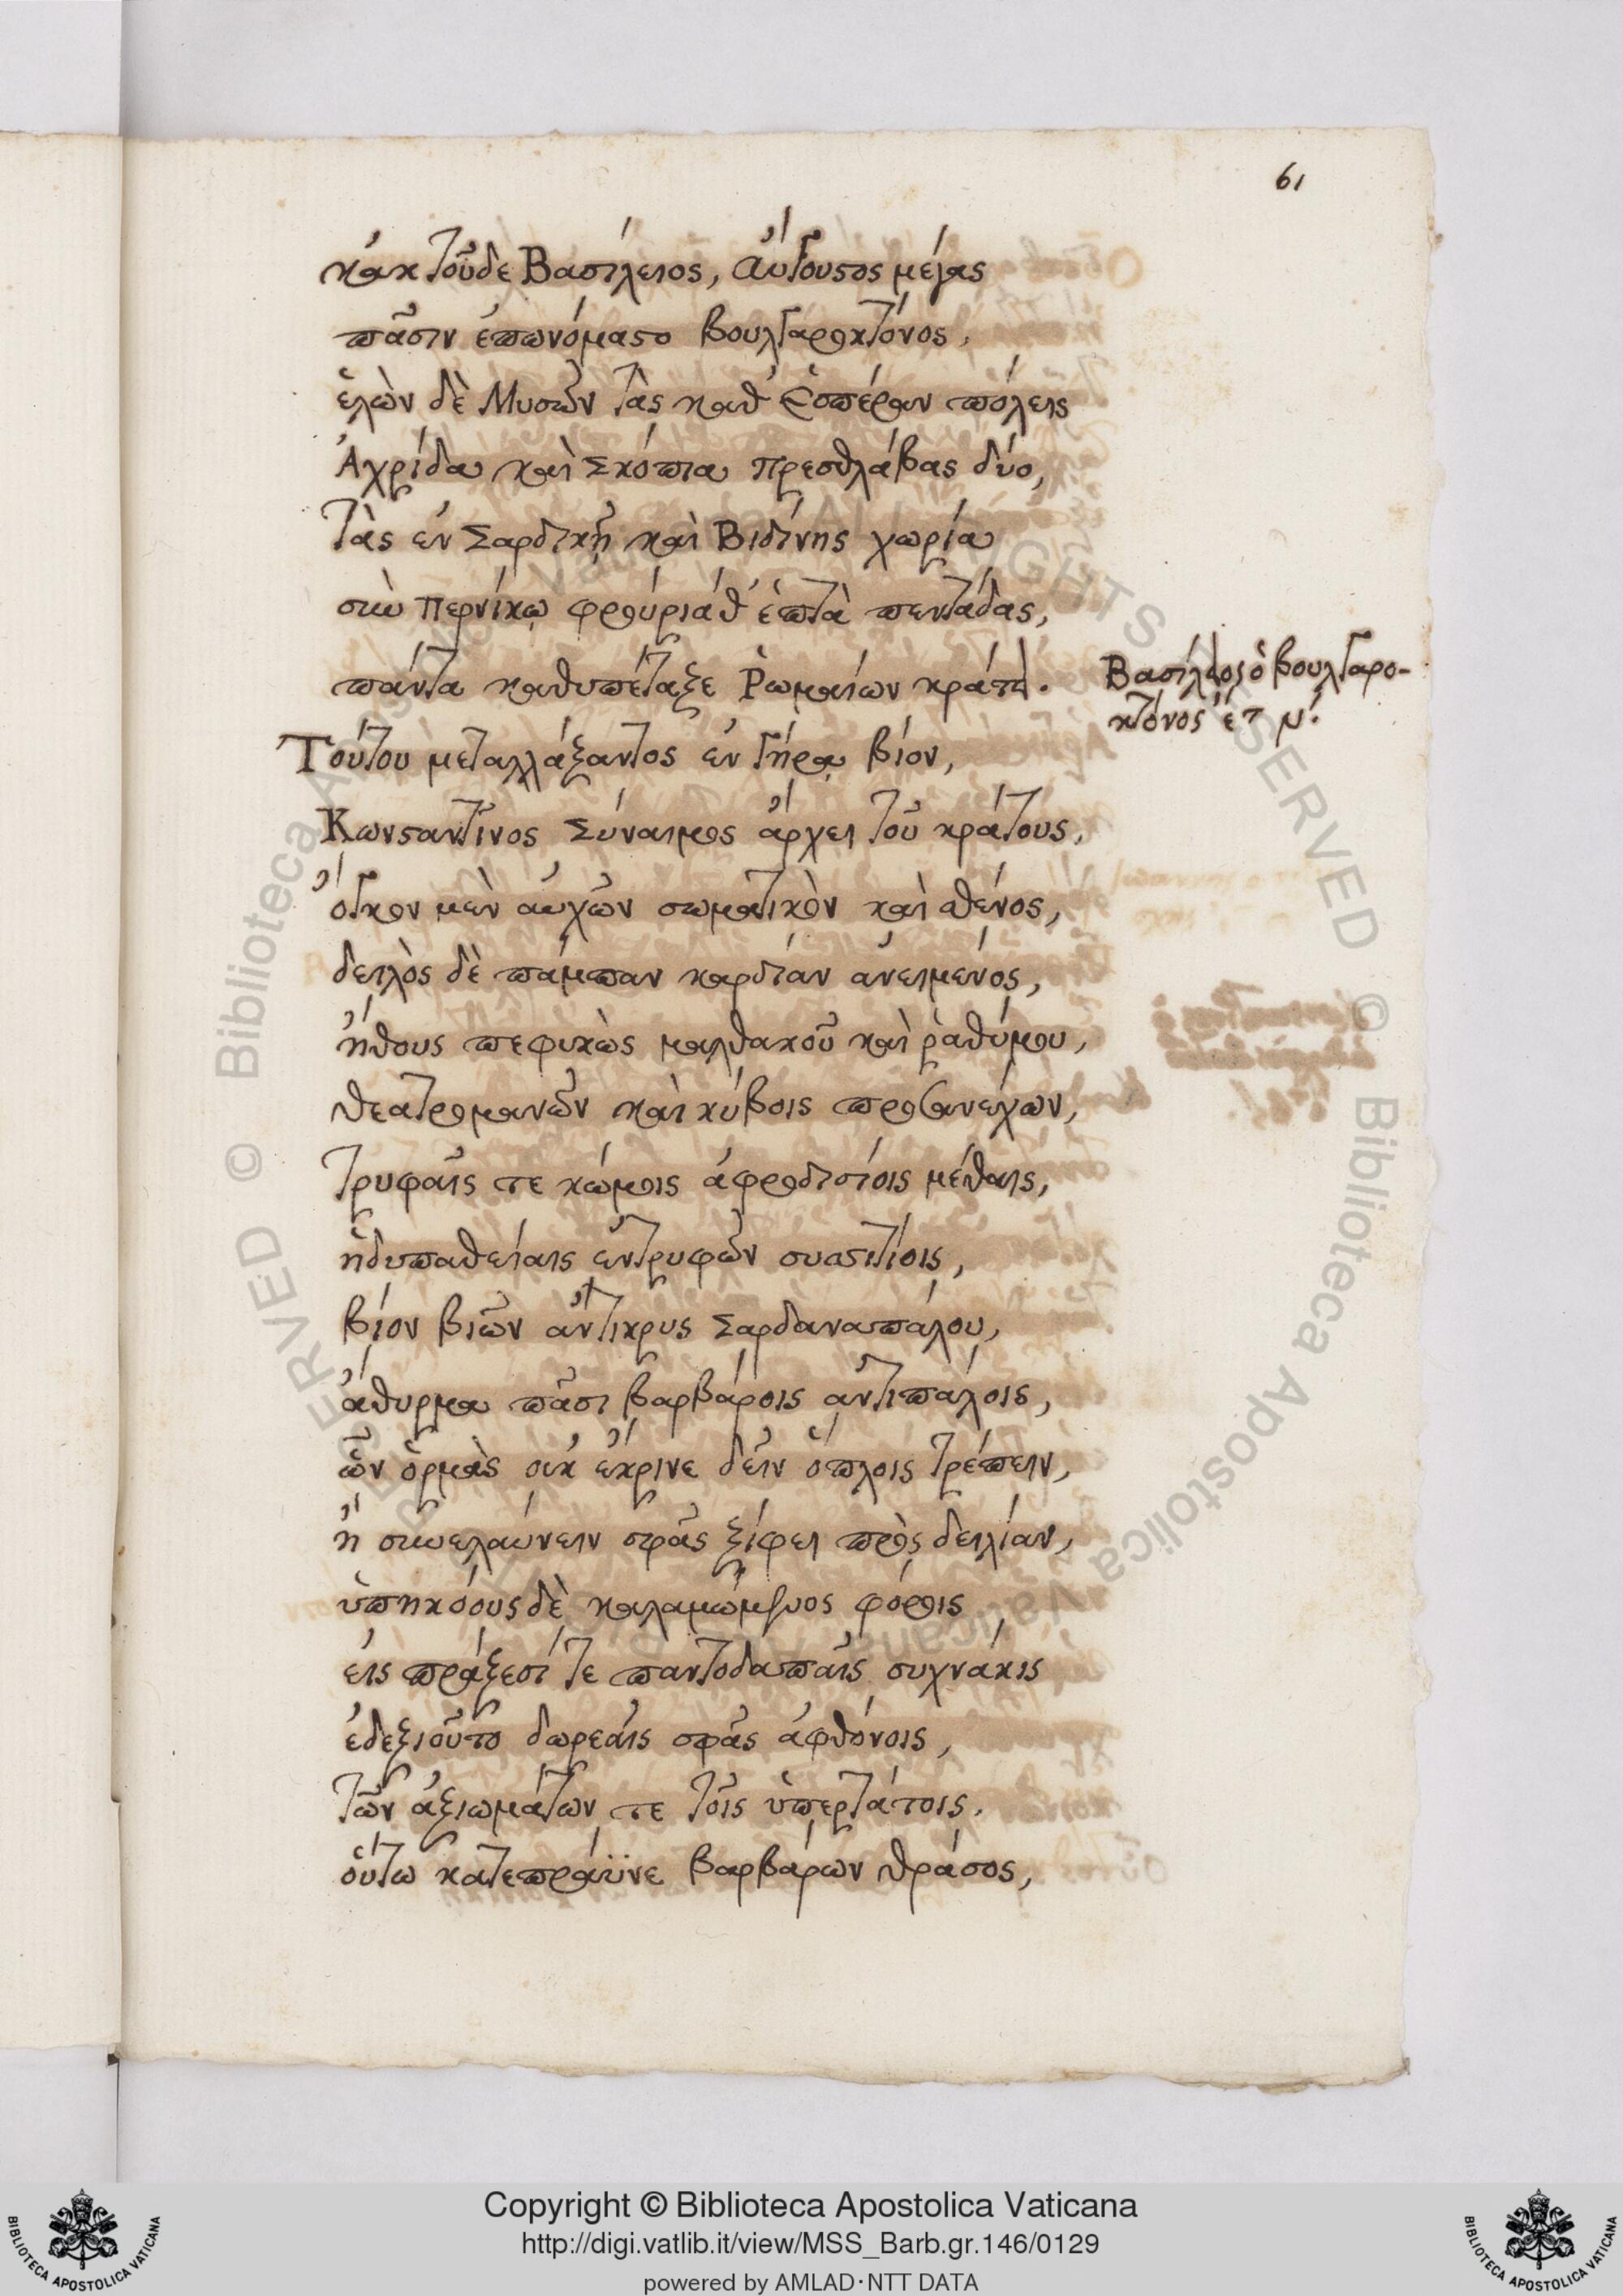 61
κἀκ τοῦδε Βασίλειος, Αὔγουστος μέγας
πᾶσιν ἐπωνόμαστο βουλγαροκτόνος,
ἑλὼν δὲ Μυσῶν τὰς καθ' ἑσπέραν πόλεις
Ἀχρίδα καὶ Σκόπια πρεσθλάβας δύο,
τὰς ἐν Σαρδικῇ καὶ Βιδίνης χωρία
σὺν Περνίκῳ φρούριά θ' ἑπτὰ πεντάδας,
πάντα καθυπέταξε Ῥωμαίων κράτει.
Βασίλειος ὁ βουλγαρο-
κτόνος ἔτ ν.
Τούτου μεταλλάξαντος ἐν γήρᾳ βίον,
Κωνσταντῖνος Σύναιμος ἄρχει τοῦ κράτους,
ὄγκον μὲν αὐχῶν σωματικὸν καὶ σθένος,
δειλὸς δὲ πάμπαν καρδίαν ἀνειμένος,
ἤθους πεφυκὼς μαλθακοῦ καὶ ῥαθύμου,
θεατρομανῶν καὶ κύβοις προσανέχων,
τρυφαῖς τε κώμοις ἀφροδισίοις μέθαις,
ἡδυπαθείαις ἐντρυφῶν συσσιτίοις,
βίον βιῶν ἄντικρυς Σαρδαναπάλου,
ἄθυρμα πᾶσι βαρβάροις ἀντιπάλοις,
ὧν ὁρμὰς οὐκ ἔκρινε δεῖν ὅπλοις τρέπειν,
ἢ συνελαύνειν σφᾶς ξίφει πρὸς δειλίαν,
ὑπηκόους δὲ καλαμώμενος φόροις
εἰσπράξεσί τε παντοδαπαῖς συχνάκις
ἐδεξιοῦτο δωρεαῖς σφᾶς ἀφθόνοις,
τῶν ἀξιωμάτων τε τοῖς ὑπερτάτοις.
οὕτω κατεπράϋνε βαρβάρων θράσος,
Copyright © Biblioteca Apostolica Vaticana
http://digi.vatlib.it/view/MSS_Barb.gr.146/0129
powered by AMLAD·NTT DATA
BIBLIOTECA APOSTOLICA VATICANA
BIBLIOTECA APOSTOLICA VATICANA